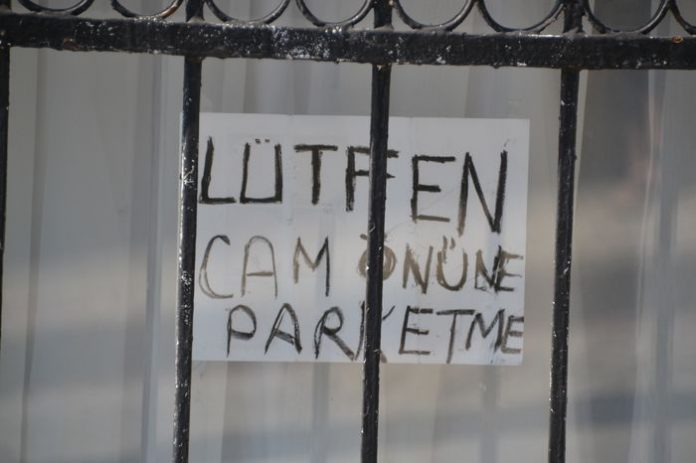 LÜTFEN
CAM ÖNÜNE
PARKETME